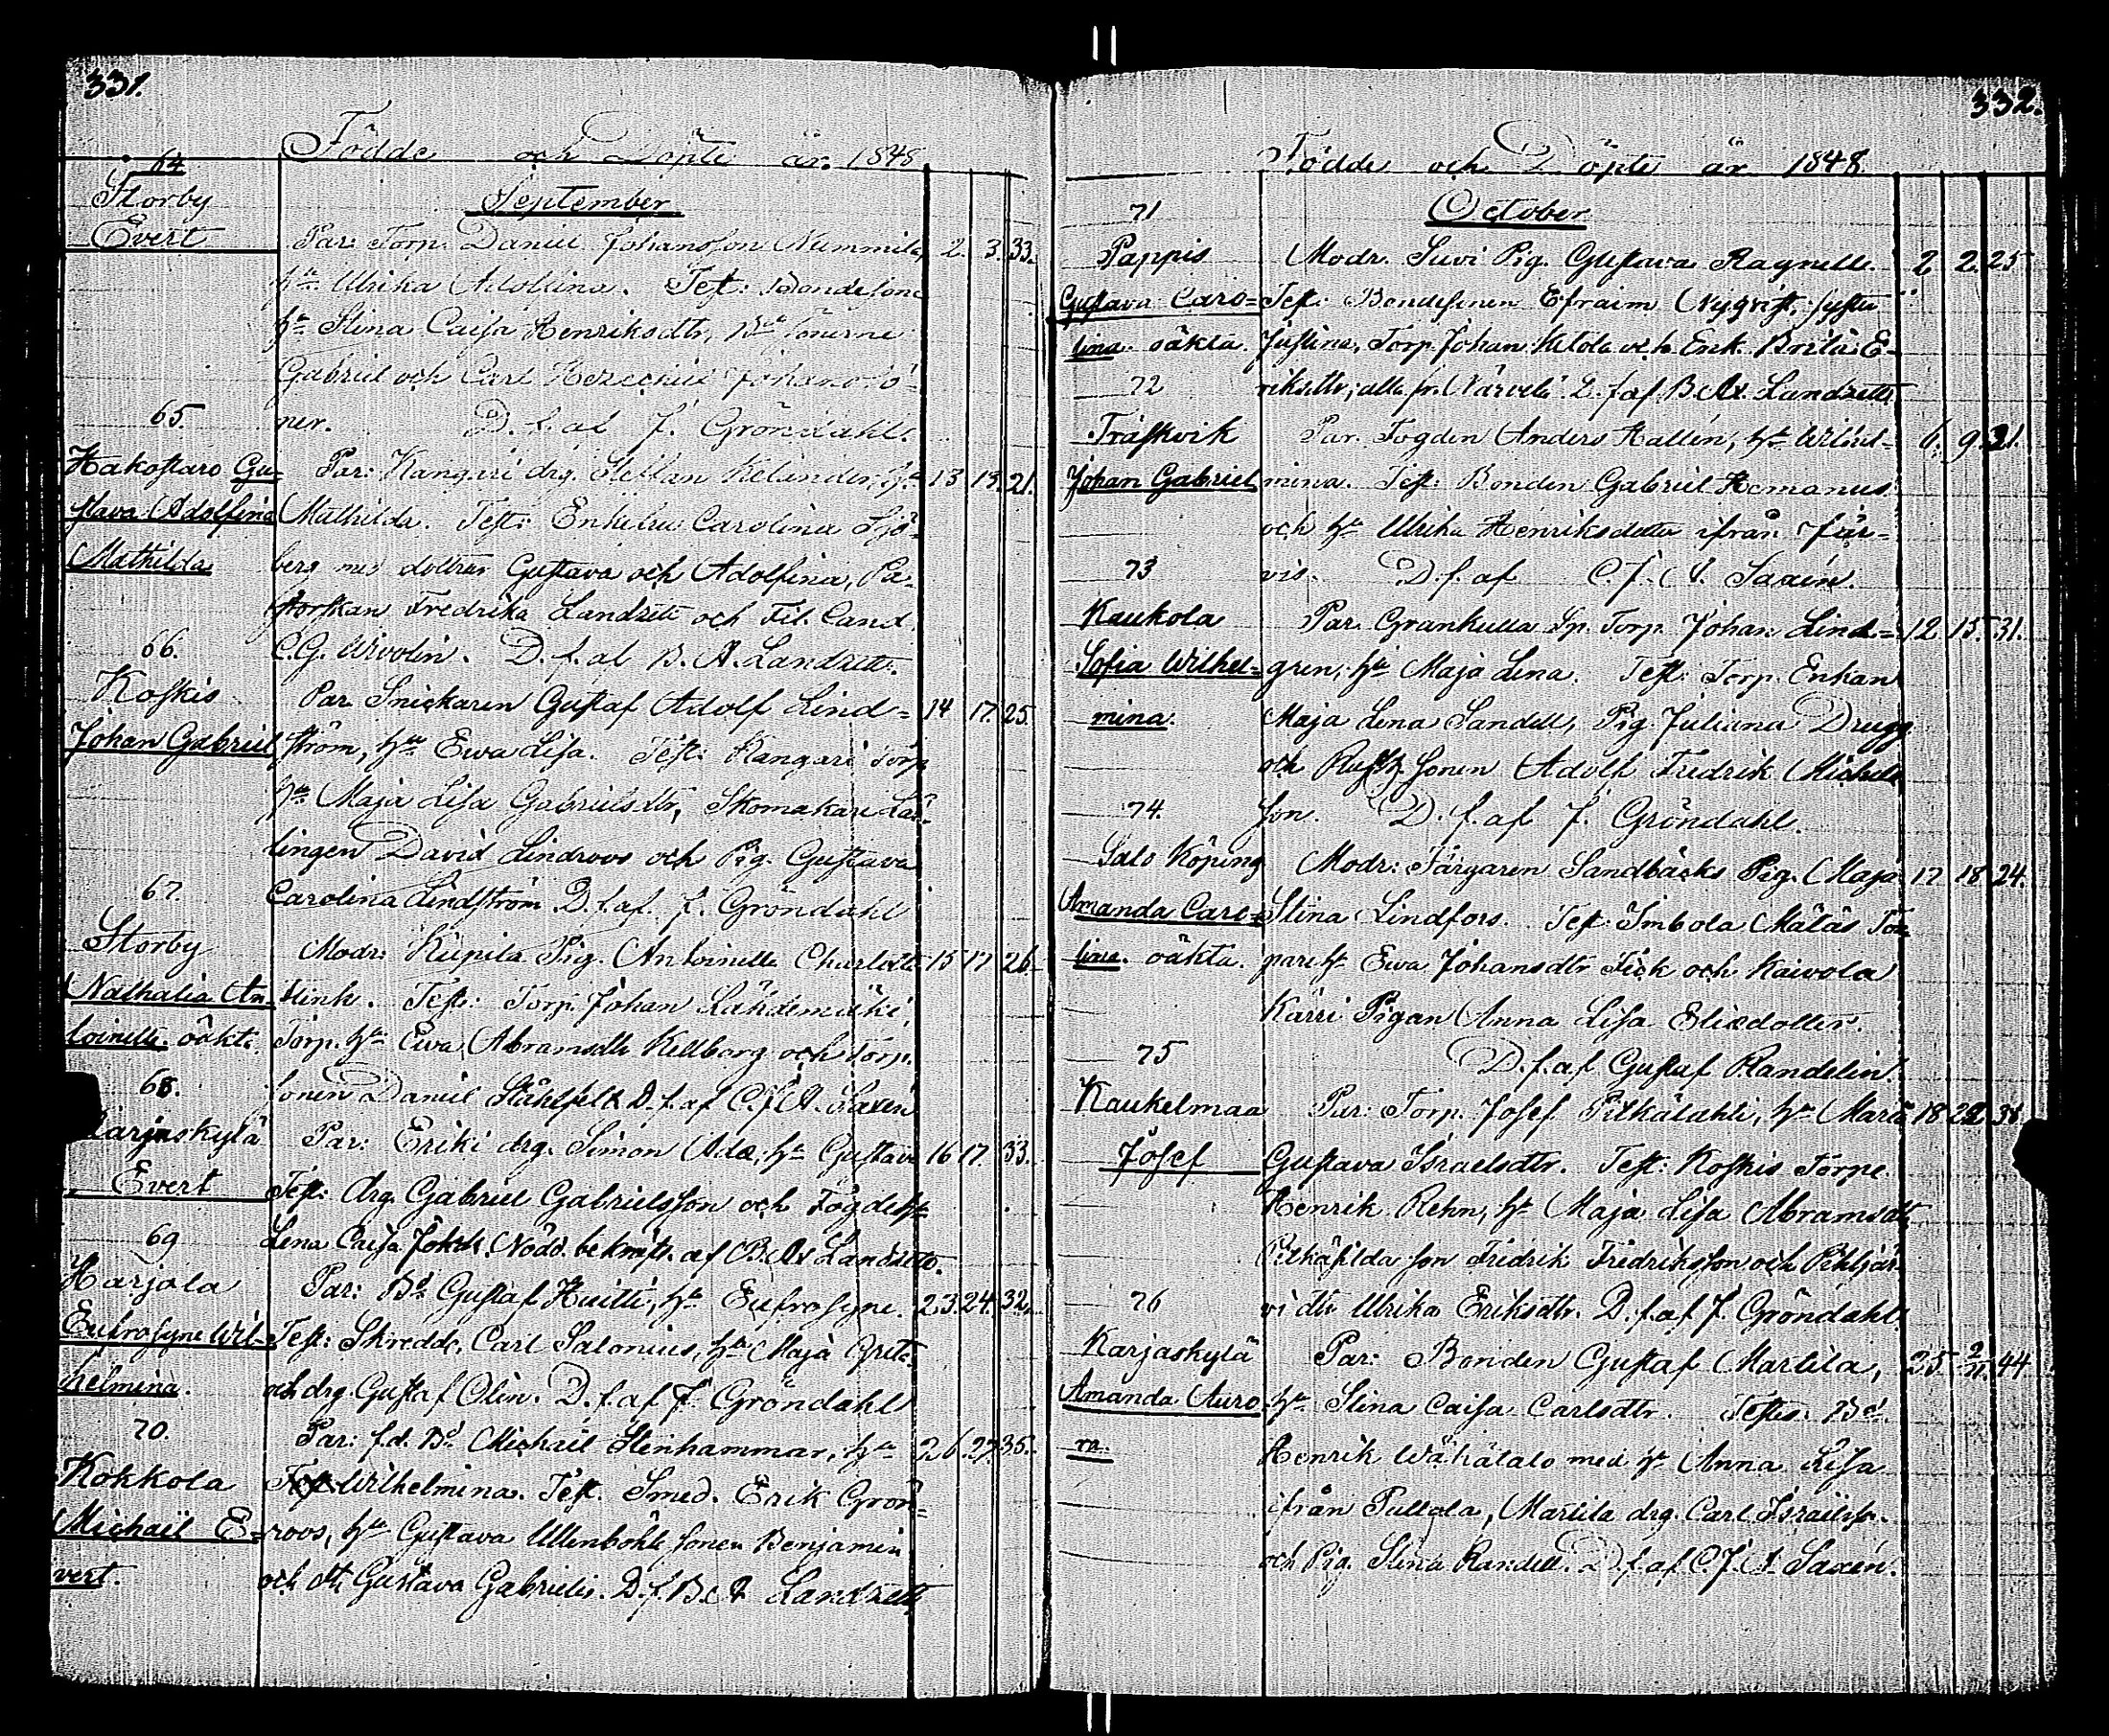 331.
Födde och Döpte år 1848
64
Storby
Evert
September
Par: Torp. Daniel Johansson Nummila, 2. 3. 33.
hu Ulrika Adolfina. Test: Bondesone
hu Stina Caisa Henriksdtr, Bde sönerne
Gabriel och Carl Hezechiel Johanssö-
ner. D. f. af J. Gröndahl.
65.
Hakostaro Gu-
stava Adolfina
Mathilda
Par: Kangari drg. Steffan Kelander, hu 13 15 21.
Mathilda. Test: Enkefru Carolina Sjö-
berg med döttrar Gustava och Adolfina, Pa-
storskan Fredrika Landzett och Fil. Cand.
C.G. Wivolin. D. f. af B. A. Landzett.
66.
Koskis
Johan Gabriel
Par. Snickaren Gustaf Adolf Lind- 14 17. 25.
ström, hu Ewa Lisa. Test: Kangari Torp
hu Maja Lisa Gabrielsdtr, Skomakare Lär-
lingen David Lindroos och Pig. Gustava
Carolina Lindström. D. f. af. J. Gröndahl
67.
Storby
Nathalia An-
toinette. oäkta.
Modr: Kiipila Pig. Antoinette Charlotte 15 17 26.
Flink. Test: Torp. Johan Lähdemäki,
Torp. hu Ewa Abramsdtr Kellborg och Torp.
sonen Daniel Stålfelt D. f. af C. J. A. Saxén
68.
Karjaskylä
Evert
Par: Eriki drg. Simon Ada, hu Gustava 16 17. 33.
Test: drg. Gabriel Gabrielsson och Fogde hu
Lena Caisa Johsdr. Nödd. bekräft. af B. A. Landzett.
69
Harjola
Eufrosyne Wil-
helmina.
Par: Bd Gustaf Huitti, hu Eufrosyne. 23. 24. 32.
Test: Skredd. Carl Salonius, hu Maja Greta
och drg. Gustaf Olin. D. f. af J. Gröndahl
70.
Kokkola
Michaël E-
vert.
Par: f.d. Bd Michaël Stenhammar, hu 26. 27. 35.
Wilhelmina. Test. Smed. Erik Grön-
roos, hu Gustava Ullenbohle sonen Benjamin
och dtr Gustava Gabrielis. D. f. B. A. Landzett
332.
Födde och Döpte år 1848.
October
71
Pappis
Gustava Caro-
lina. oäkta.
Modr. Suvi Pig. Gustava Ragnell. 2 2. 25
Test: Bondesonen Efraim Nyqvist, syster
Justina, Torp. Johan Kitola och Enk. Brita E-
riksdtr, alla fr. Närvelä D. f. af B. A. Landzett.
72
Träskvik
Johan Gabriel
Par. Fogden Anders Hallén, hu Wilhel- 6. 9. 21.
mina. Test: Bonden Gabriel Hemanus
och hu Ulrika Henriksdotter ifrån Jur-
vis. D. f. af C. J. A. Saxén.
73
Kaukola
Sofia Wilhel-
mina.
Par. Grankulla Sp. Torp. Johan Lind- 12 15. 31.
gren, hu Maja Lena. Test: Torp. Enkan
Maja Lena Sandell, Pig. Juliana Drugg
och Rusth. sonen Adolf Fredrik Michels
son. D. f. af J. Gröndahl.
74.
Salo Köping
Amanda Caro-
lina. oäkta.
Modr: Färgaren Sandbäcks Pig. Maja 17 18 24.
Stina Lindfors. Test: Imbola Mälås Tor-
pare hu Ewa Johansdtr Fick och Kaivola
Kärri Pigan Anna Lisa Eliædotter.
D. f. af Gustaf Randelin.
75
Kaukelmaa
Josef
Par: Torp. Josef Pitkälahti, hu Maria 18 22 38
Gustava Israelsdtr. Test: Koskis Torpe.
Henrik Rehn, hu Maja Lisa Abramsdtr,
Pitkäsilda son Fredrik Fredriksson och Pihljär-
vi dtr Ulrika Eriksdtr. D. f. af J. Gröndahl.
76
Karjaskylä
Amanda Auro
ra.
Par: Bonden Gustaf Martila, 25. 2/11. 44
hu Stina Caisa Carlsdtr. Testes: Bd.
Henrik Wähätalo med hu Anna Lisa
ifrån Pullola, Martila drg. Carl Israelss.
och Pig. Stina Randell. D. f. af C. J. A. Saxén.